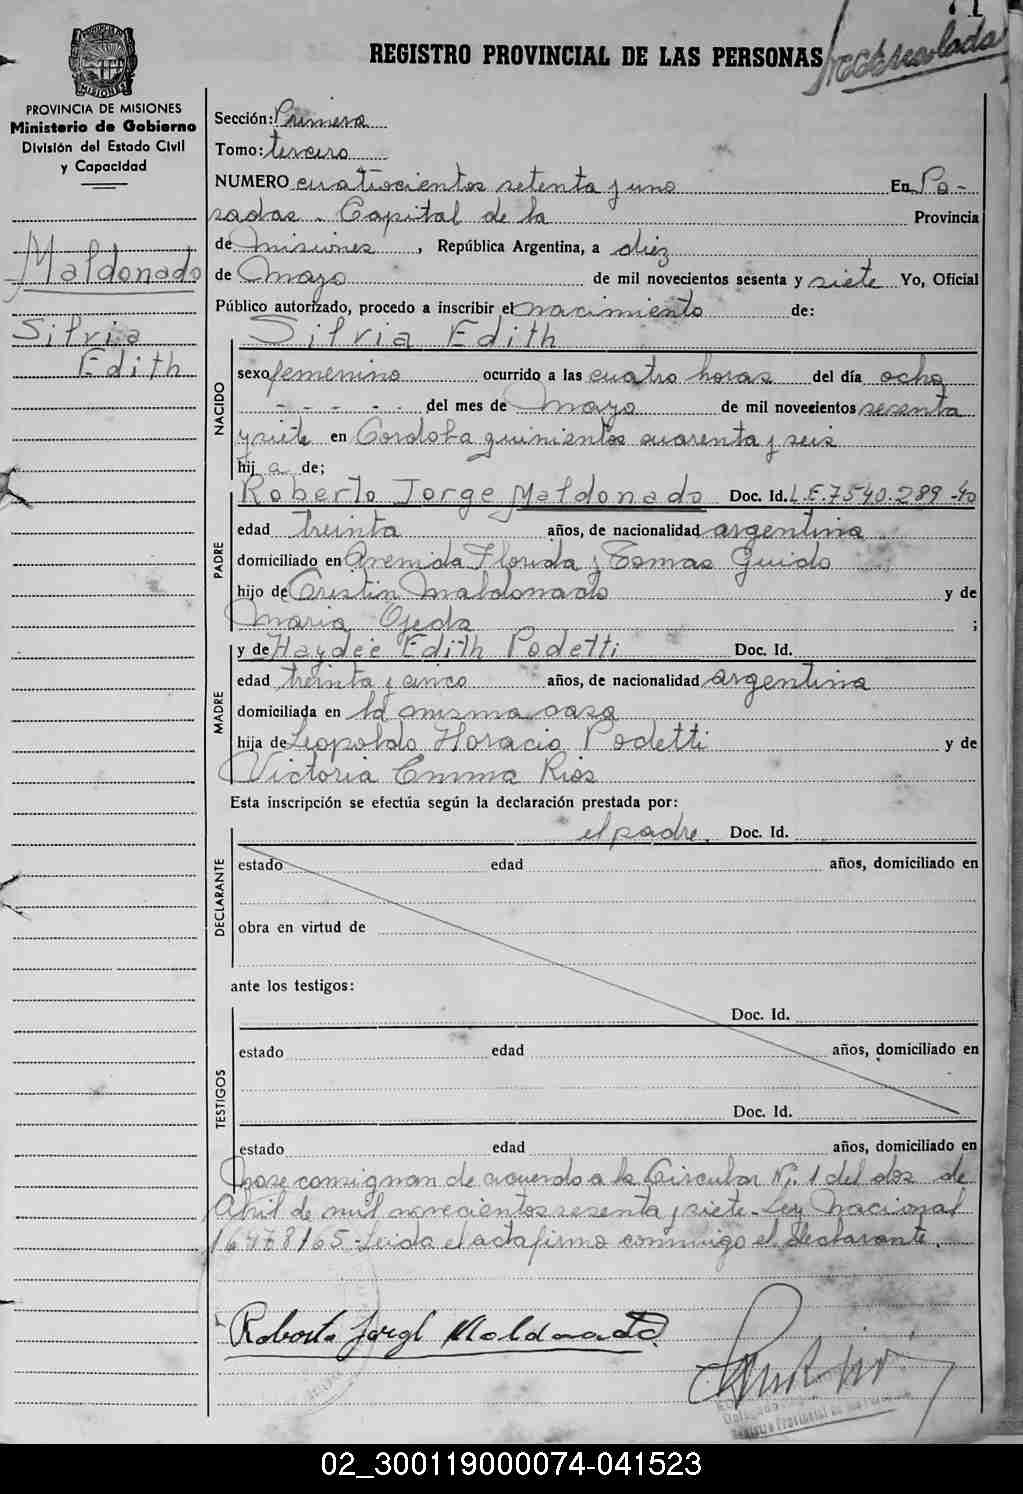 REGISTRO PROVINCIAL DE LAS PERSONAS
PROVINCIA DE MISIONES
Ministerio de Gobierno
División del Estado Civil
y Capacidad
Maldonado
Silvia
Edith
Sección: Primera
Tomo: tercero
NUMERO cuatrocientos setenta y uno En Po-
sadas - Capital de la Provincia
de misiones, República Argentina, a diez
de mayo de mil novecientos sesenta y siete Yo, Oficial
Público autorizado, procedo a inscribir el nacimiento de:
Silvia Edith
NACIDO
sexo femenino ocurrido a las cuatro horas del día ocho
- - - - - del mes de Mayo de mil novecientos sesenta
y siete en Cordoba quinientos cuarenta y seis
hij a de;
PADRE
Roberto Jorge Maldonado Doc. Id. L.E. 7540.289-
edad treinta años, de nacionalidad argentina
domiciliado en Avenida Florida y Tomas Guido
hijo de Cristin Maldonado y de
Maria Ojeda ;
MADRE
y de Haydeé Edith Podetti Doc. Id.
edad treinta y cinco años, de nacionalidad argentina
domiciliada en la misma casa
hija de Leopoldo Horacio Podetti y de
Victoria Emma Rios
Esta inscripción se efectúa según la declaración prestada por:
DECLARANTE
el padre. Doc. Id.
estado edad años, domiciliado en
obra en virtud de
ante los testigos:
TESTIGOS
Doc. Id.
estado edad años, domiciliado en
Doc. Id.
estado edad años, domiciliado en
no se consignan de acuerdo a la Circular N° 1 del dos de
Abril de mil novecientos sesenta y siete - Ley Nacional
16478/65 - Leida el acta firma conmigo el declarante.
Roberto Jorge Maldonado
Registro Provincial de las Personas
02_300119000074-041523